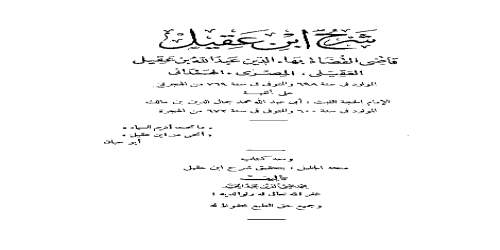 شرح ابن عقيل
قاضى القضاة بهاء الدين عبد الله بن عقيل
العقيلى ، المصرى ، الهمذانى
المولود فى سنة ٦٩٨ والمتوفى فى سنة ٧٦٩ من الهجرة
على ألفية
الإمام الحجة الثبت : أبى عبد الله محمد جمال الدين بن مالك
المولود فى سنة ٦٠٠ والمتوفى فى سنة ٦٧٢ من الهجرة
« ما تحت أديم السماء
أنحى من ابن عقيل »
أبو حيان
ومعه كتاب
منحة الجليل ، بتحقيق شرح ابن عقيل
تأليف
محمد محيى الدين عبد الحميد
غفر الله تعالى له ولوالديه !
وجميع حق الطبع محفوظ له